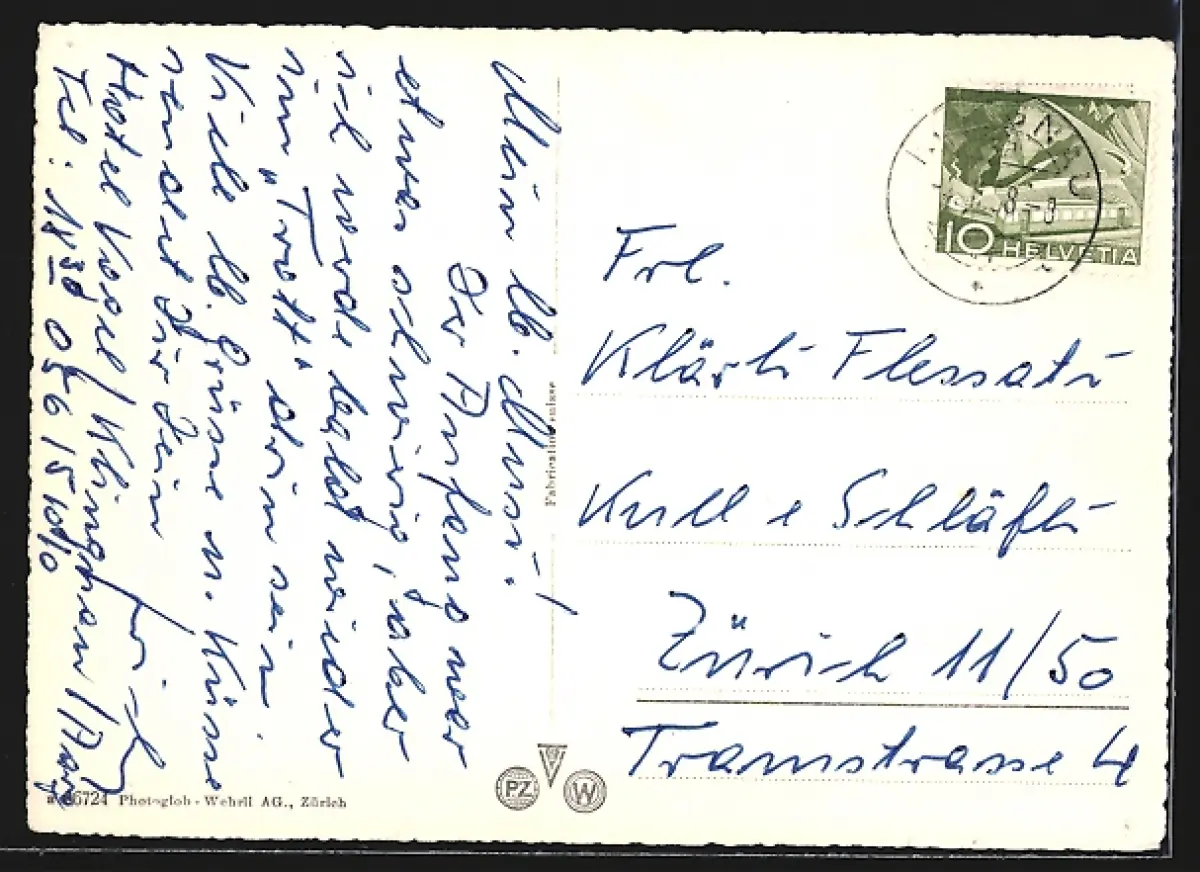 Mein lb. Mussi!
Der Anfang war
etwas schwierig, aber
ich werde bald wieder
im „Trott" drin sein
Viele lb. Grüsse u. Küsse
sendet Dir Dein
Hotel Vogel / Klingnau / Aarg
Tel: 056 5 10 10
Frl.
Klärli Flessati
Kull & Schläfli
Zürich 11/50
Tramstrasse 4
10 HELVETIA
Fabrication suisse
6724 Photoglob-Wehrli AG., Zürich
PZ
W